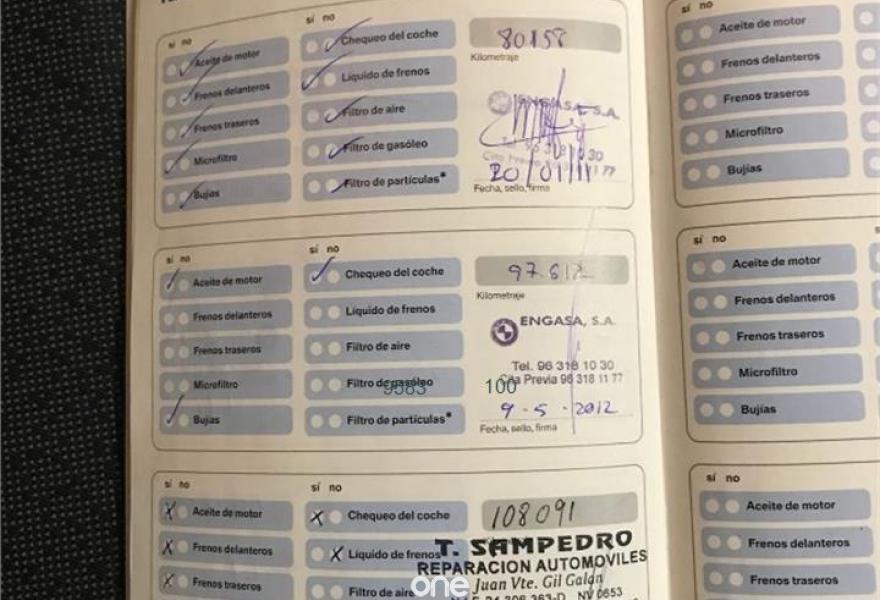 sí no
Aceite de motor
Frenos delanteros
Frenos traseros
Microfiltro
Bujías
sí no
Chequeo del coche
Líquido de frenos
Filtro de aire
Filtro de gasóleo
Filtro de partículas*
80158
Kilometraje
ENGASA, S.A.
20/01/11
Fecha, sello, firma
sí no
Aceite de motor
Frenos delanteros
Frenos traseros
Microfiltro
Bujías
sí no
Chequeo del coche
Líquido de frenos
Filtro de aire
Filtro de gasóleo
Filtro de partículas*
97.612
Kilometraje
ENGASA, S.A.
Tel. 96 318 10 30
Cita Previa 96 318 11 77
9583 100
9-5-2012
Fecha, sello, firma
sí no
X Aceite de motor
X Frenos delanteros
X Frenos traseros
sí no
X Chequeo del coche
X Líquido de frenos
Filtro de aire
108091
T. SAMPEDRO
REPARACION AUTOMOVILES
Juan Vte. Gil Galán
one
sí no
Aceite de motor
Frenos delanteros
Frenos traseros
Microfiltro
Bujías
sí no
Aceite de motor
Frenos delanteros
Frenos traseros
Microfiltro
Bujías
sí no
Aceite de motor
Frenos delanteros
Frenos traseros